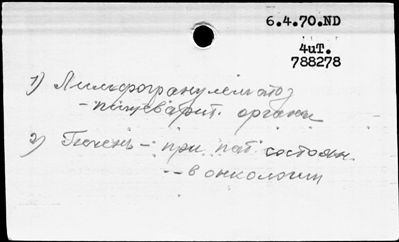 6.4.70.ND
4uT.
788278
1) Лимфогранулематоз
- пищеварит. органы
2) Печень - при пат. состоян.
-- в онкологии